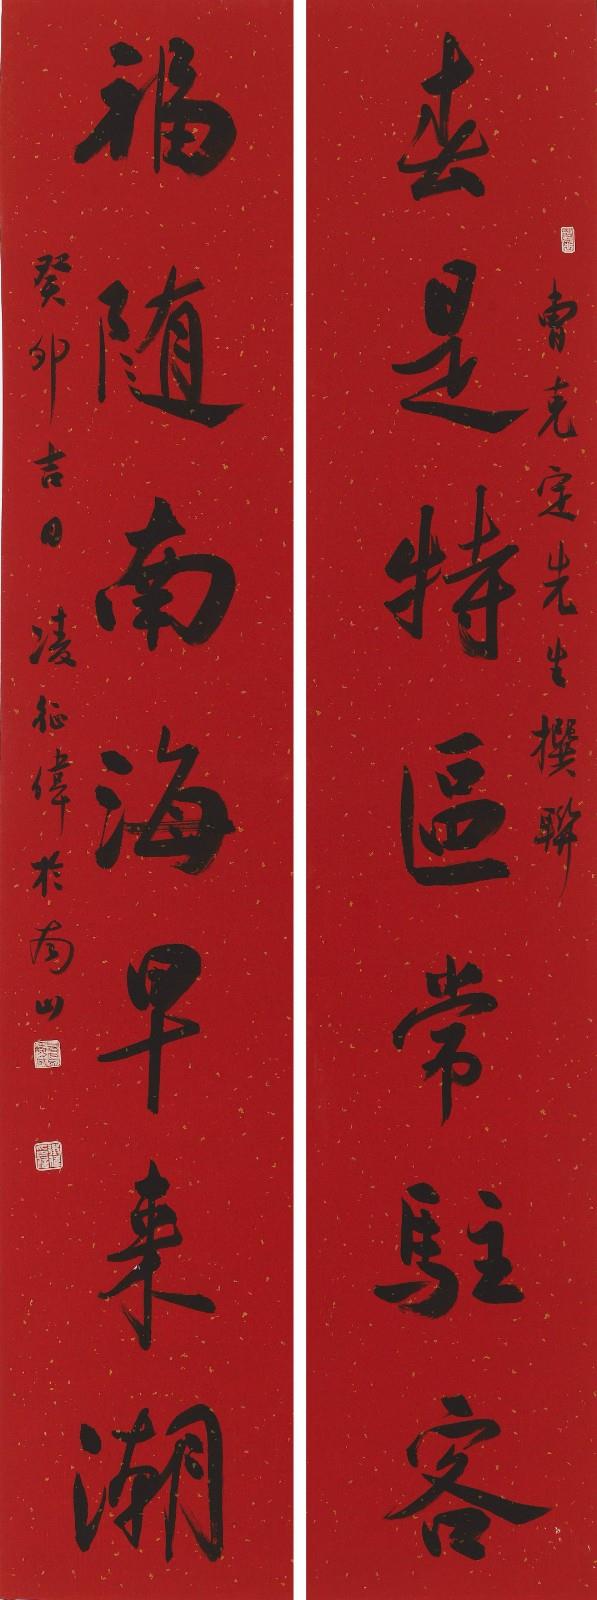 春是特區常駐客
曹克定先生撰聯
福随南海早来潮
癸卯吉日 凌征偉於南山